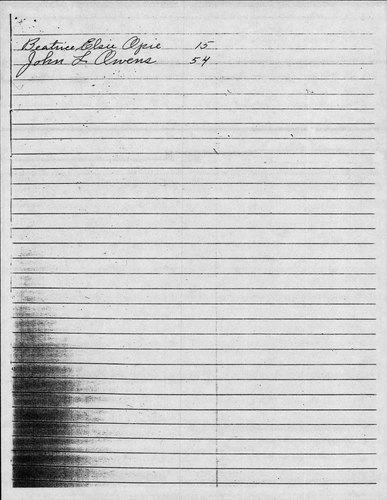 Beatrice Elsie Opie 15
John L Owens 54